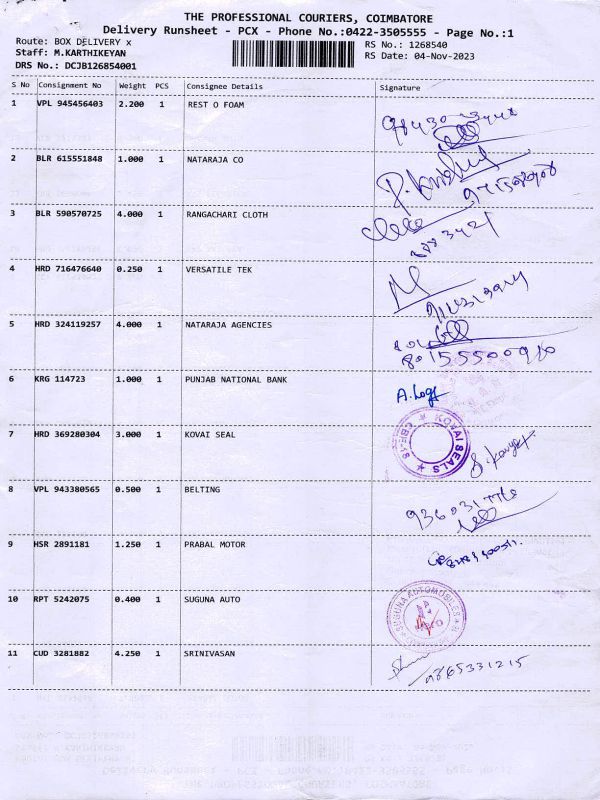 THE PROFESSIONAL COURIERS, COIMBATORE
Delivery Runsheet - PCX - Phone No.:0422-3505555 - Page No.:1
Route: BOX DELIVERY x
RS No.: 1268540
Staff: M.KARTHIKEYAN
RS Date: 04-Nov-2023
DRS No.: DCJB126854001
S No Consignment No Weight PCS Consignee Details Signature
1 VPL 945456403 2.200 1 REST O FOAM
2 BLR 615551848 1.000 1 NATARAJA CO
3 BLR 590570725 4.000 1 RANGACHARI CLOTH
4 HRD 716476640 0.250 1 VERSATILE TEK
5 HRD 324119257 4.000 1 NATARAJA AGENCIES
6 KRG 114723 1.000 1 PUNJAB NATIONAL BANK
7 HRD 369280304 3.000 1 KOVAI SEAL
KOVAI SEALS
8 VPL 943380565 0.500 1 BELTING
9 HSR 2891181 1.250 1 PRABAL MOTOR
10 RPT 5242075 0.400 1 SUGUNA AUTO
SUGUNA AUTOMOBILES
11 CUD 3281882 4.250 1 SRINIVASAN
9865331215